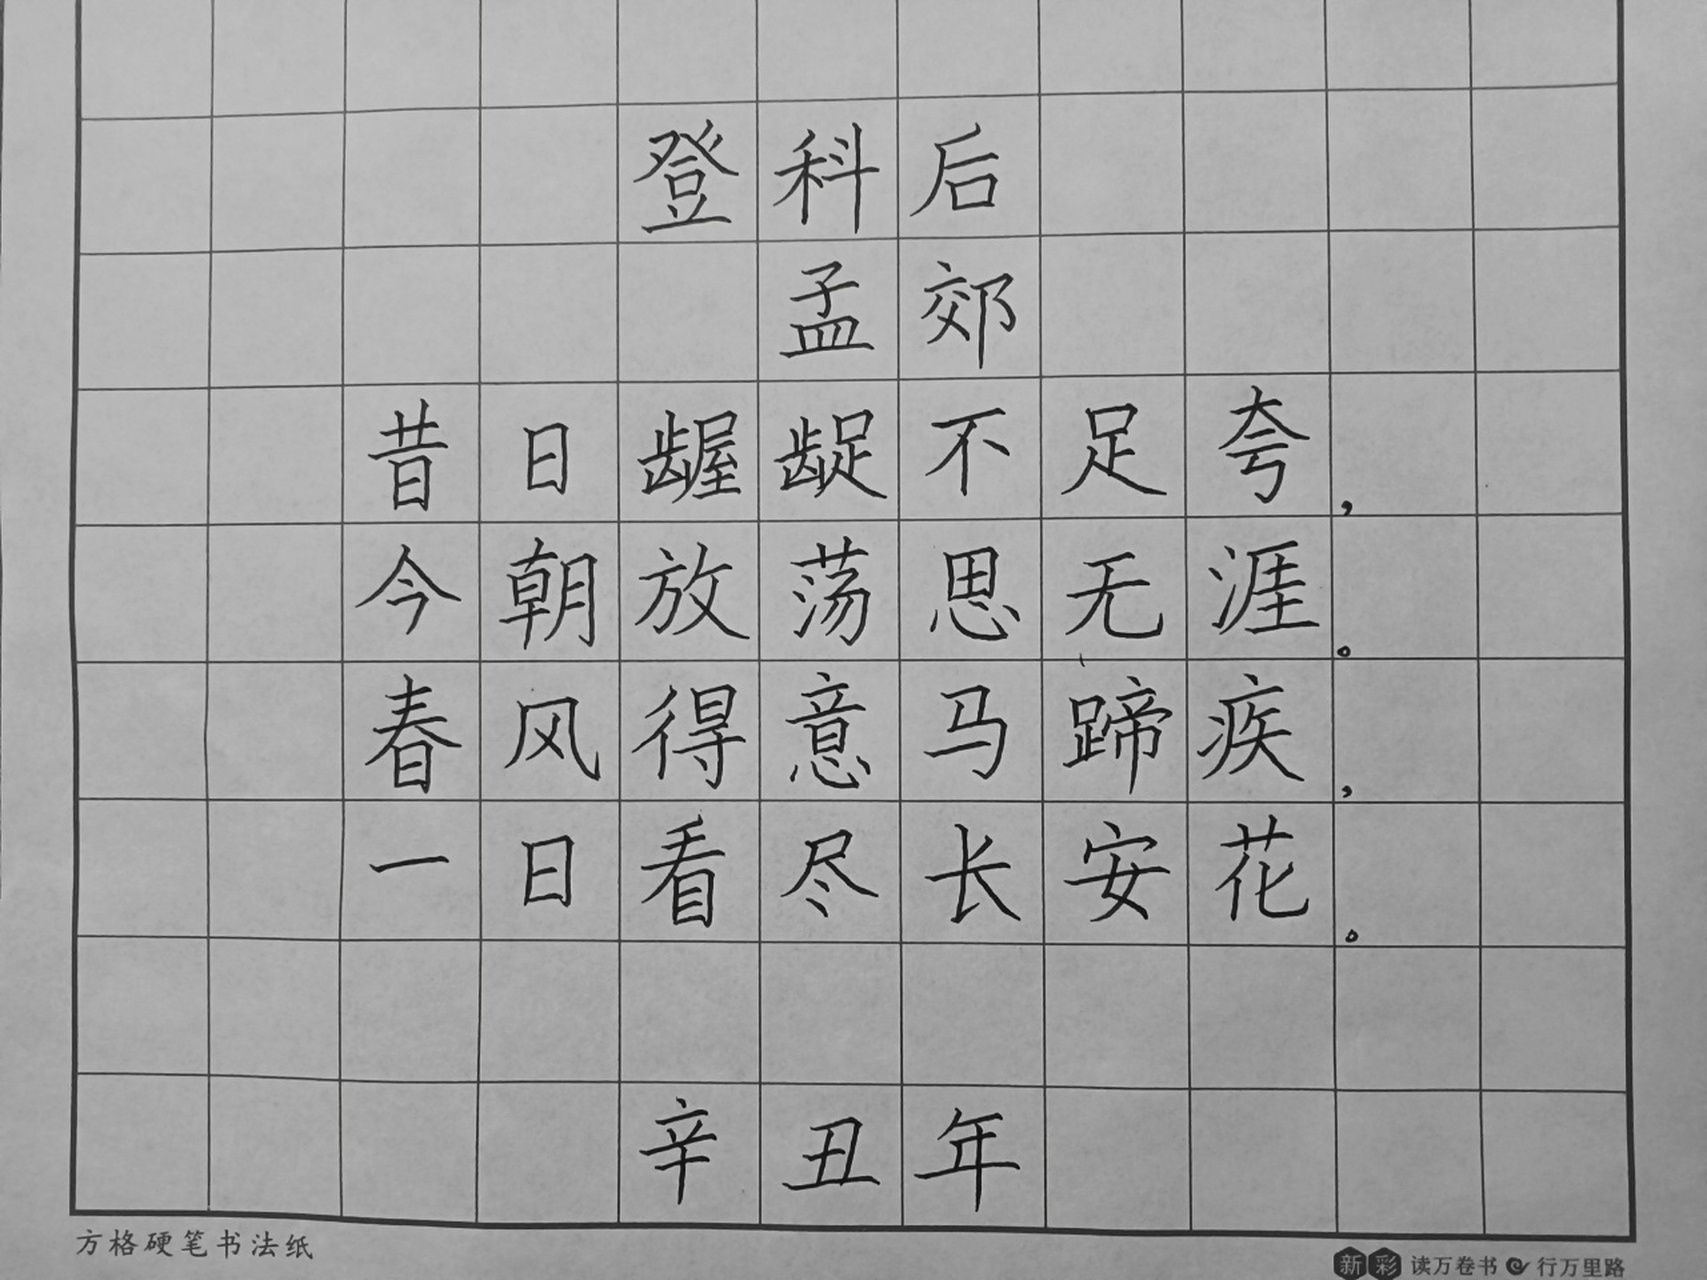 登科后
孟郊
昔日龌龊不足夸，
今朝放荡思无涯。
春风得意马蹄疾，
一日看尽长安花。
辛丑年
方格硬笔书法纸
新彩 读万卷书 行万里路